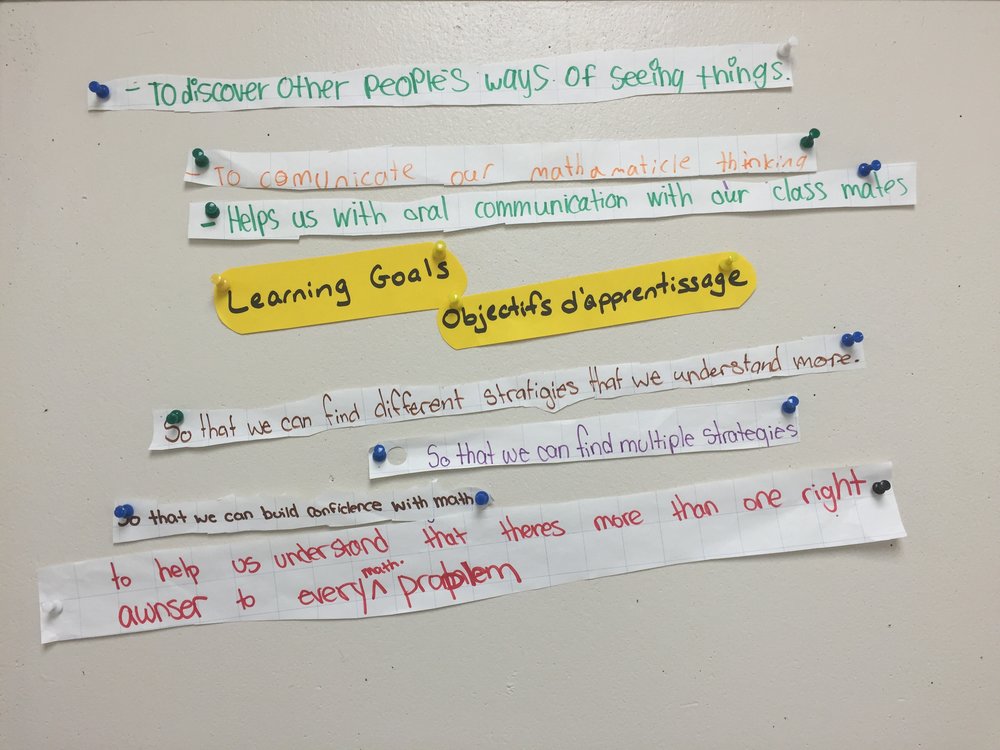 - To discover other people's ways of seeing things.
- To comunicate our mathamaticle thinking
- Helps us with oral communication with our class mates
Learning Goals
Objectifs d'apprentissage
So that we can find different stratigies that we understand more.
So that we can find multiple strategies
So that we can build confidence with math
to help us understand that theres more than one right
awnser to every math. problem